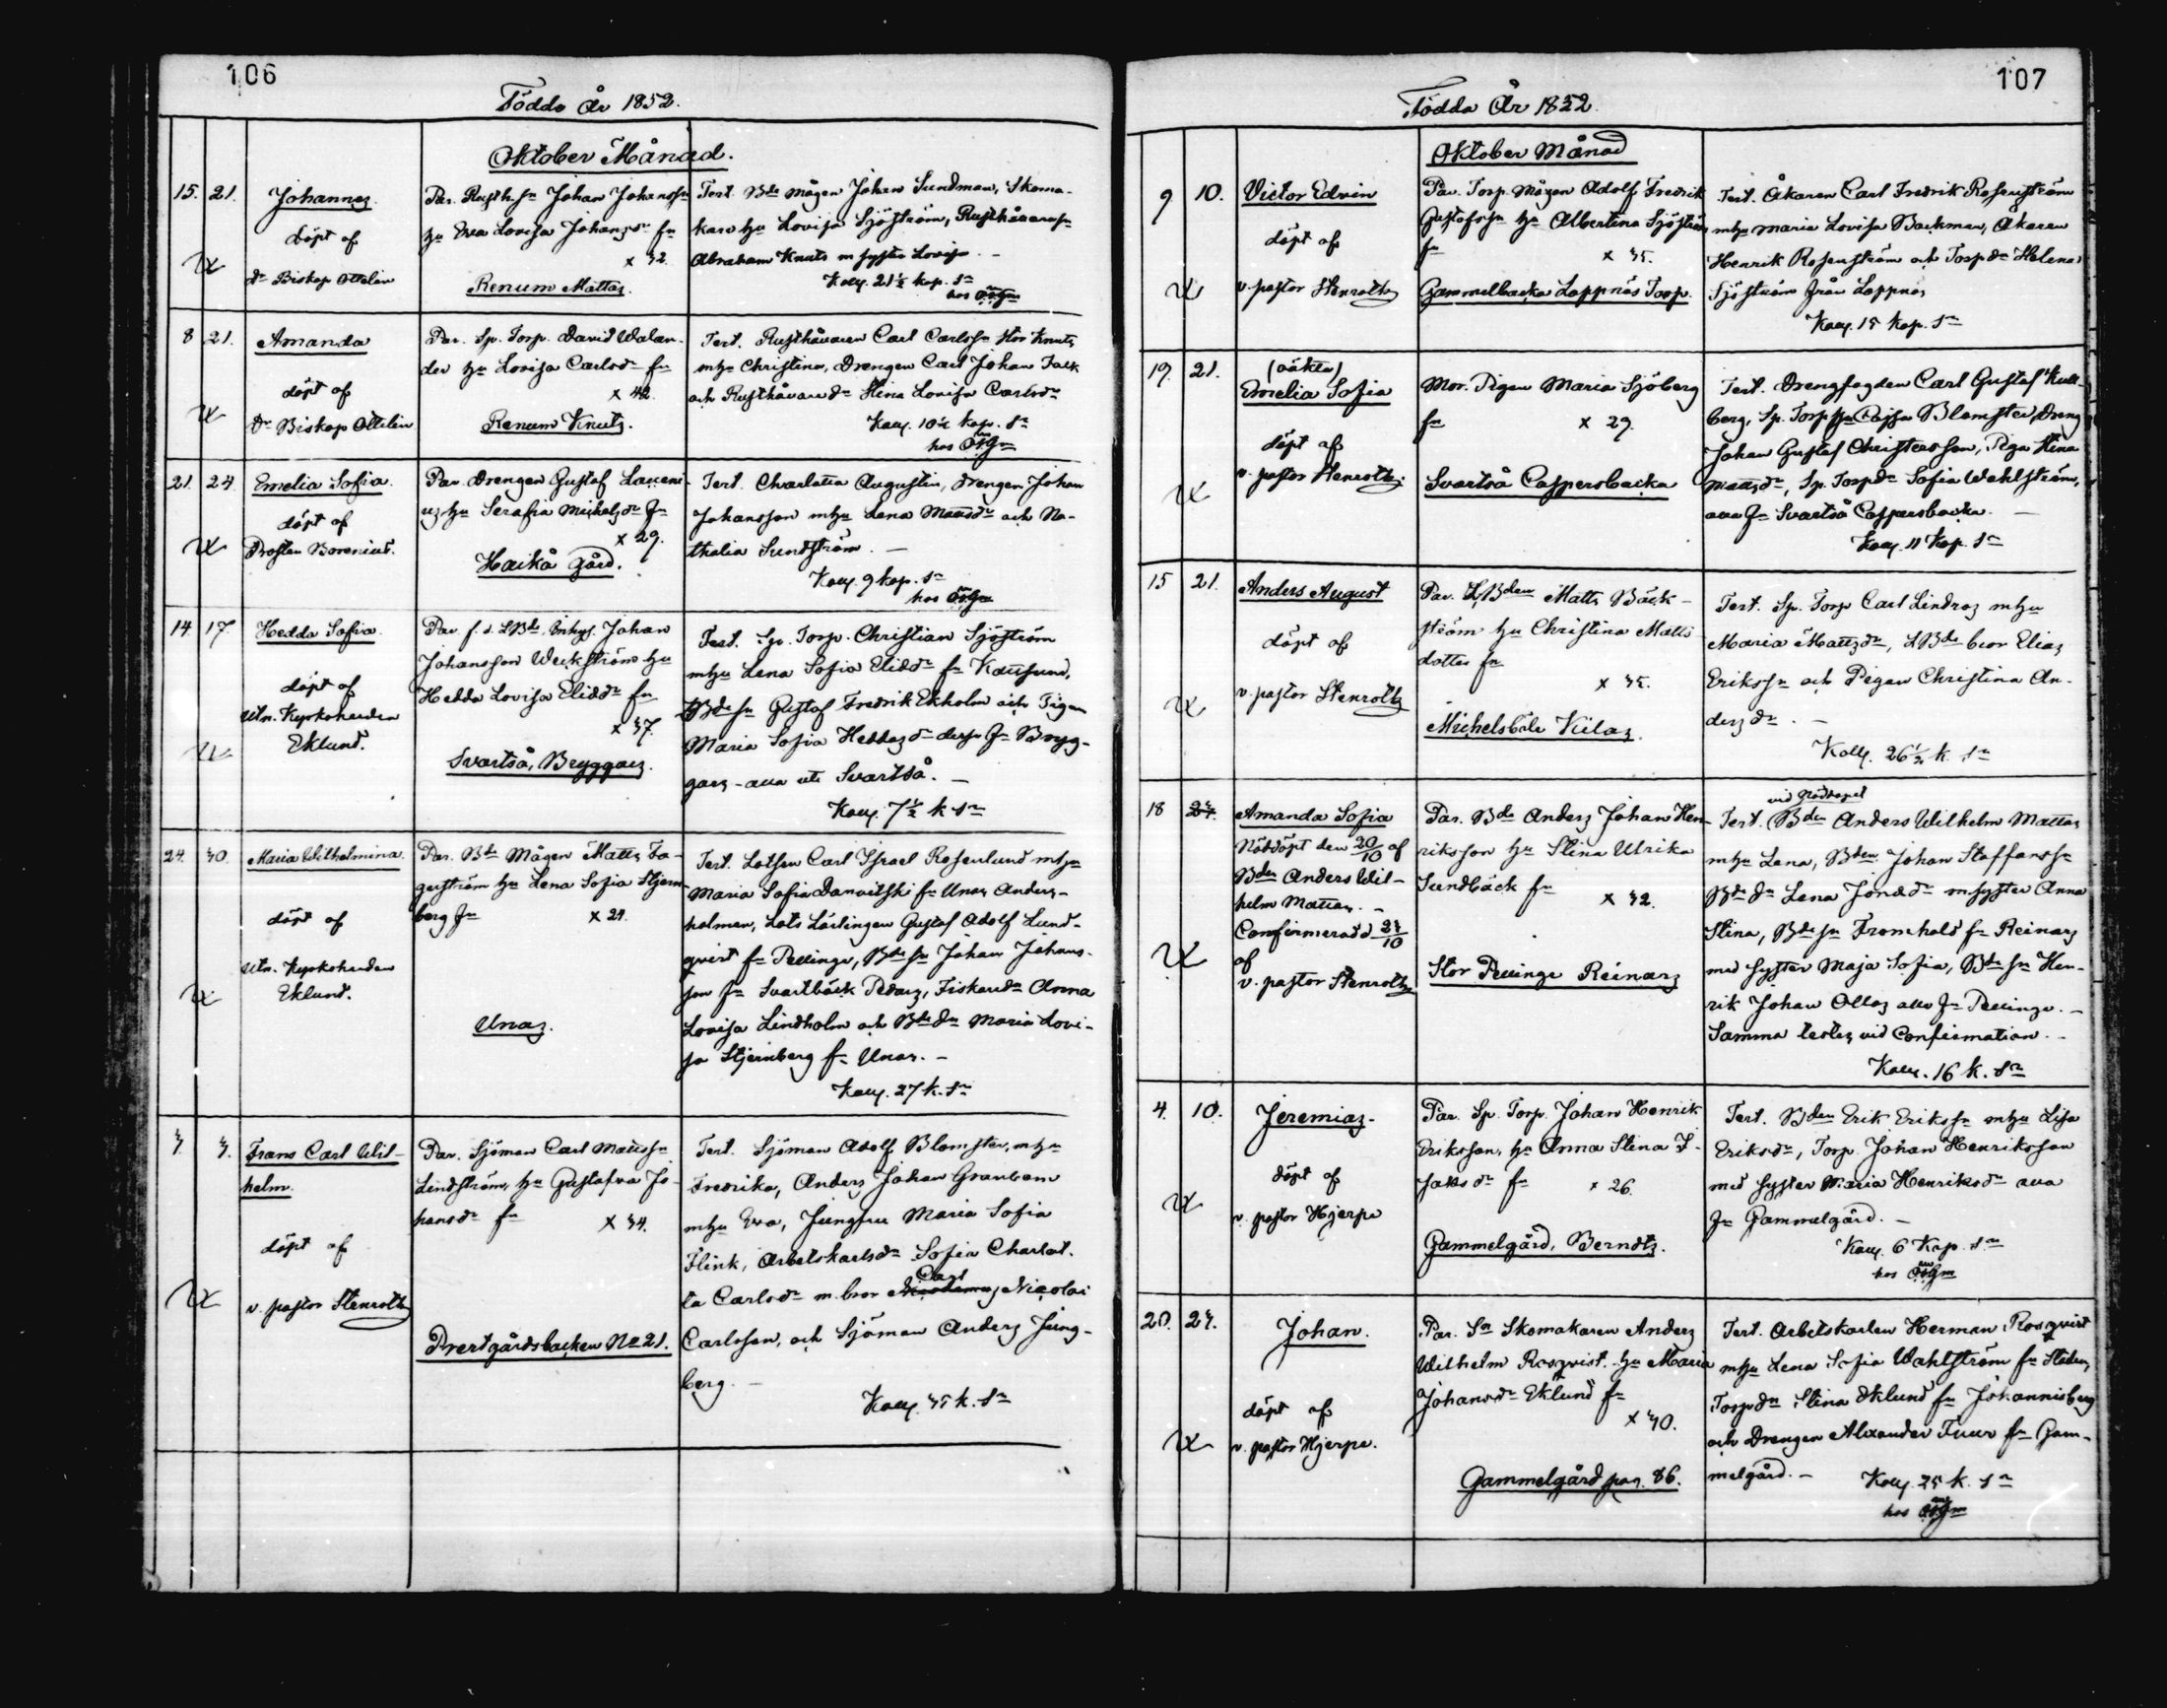 106
Födda År 1852.
Oktober Månad.
15. 21. Johannes
döpt af
Dr Biskop Ottelin
Par. Rusth. sn Johan Johanssn
hu Eva Lovisa Johansdr fn
x 32.
Renum Mattas.
Test. Bde mågen Johan Sundman, Skoma-
kare hu Lovisa Sjöström, Rusthållaresn
Abraham Knuts m syster Lovisa. -
Koll. 21½ kop. Sr
8 21. Amanda
döpt af
Dr Biskop Ottelin
Par. Sp. Torp. David Walan-
der hu Lovisa Carlsdr fn
x 42.
Renum Knuts.
Test. Rusthållaren Carl Carlssn Stor Knuts
mhu Christina, Drengen Carl Johan Falk
och Rusthållaredr Stina Lovisa Carlsdr
Koll. 10½ kop. Sr
21. 24. Emelia Sofia.
döpt af
Prosten Borenius.
Par. Drengen Gustaf Laureni-
us hu Serafia Michelsdr fn
x 29.
Haikå Gård.
Test. Charlotta Augustin, Drengen Johan
Johansson mhu Lena Mattsdr och Na-
thalia Sundström. -
Koll. 9 kop. Sr
14 17. Hedda Sofia.
döpt af
Utn. Kyrkoherden
Eklund.
Par. f. d. LBde Inhys. Johan
Johansson Weckström hu
Hedda Lovisa Eliedr fn
x 37.
Svartså, Bryggars.
Test. Sp. Torp. Christian Sjöström
mhu Lena Sofia Eliedr fn Kallsund,
Bde sn Gustaf Fredrik Ekholm och Pigan
Maria Sofia Heddasdr ders fn Brygg-
gars - alla uti Svartså. -
Koll. 7½ k Sr
24. 30. Maria Wilhelmina.
döpt af
Utn. Kyrkoherden
Eklund.
Par. Bde Mågen Matts Fa-
gerström hu Lena Sofia Stjern-
berg fn x 29.
Unas.
Test. Lotsen Carl Israel Rosenlund mhu
Maria Sofia Danvitski fn Unas Anders-
holmen, Lots Lärlingen Gustaf Adolf Lund-
qvist fn Pellinge, Bde sn Johan Johans-
son fn Svartbäck Pedars, Fiskaredr Anna
Lovisa Lindholm och Bde dn Maria Lovi-
sa Stjernberg fn Unas. -
Koll. 27 k. Sr
3. 3. Frans Carl Wil-
helm.
döpt af
v. pastor Stenroth
Par. Sjöman Carl Mattssn
Lindström, hu Gustafva Jo-
hansdr fn x 34.
Prestgårdsbacken No 21.
Test. Sjöman Adolf Blomster, mhu
Fredrika, Anders Johan Granbom
mhu Eva, Jungfru Maria Sofia
Flink, Arbetskarlsdr Sofia Charlot-
ta Carlsdr m. bror Carl Nicolai
Carlsson, och Sjöman Anders Ljung-
berg. -
Koll. 35 k. Sr
107
Födda År 1852.
Oktober Månad
9 10. Victor Edvin
döpt af
v. pastor Stenroth
Par. Torp. Mågen Adolf Fredrik
Gustafssn hu Albertina Sjöström
fn x 35.
Gammelbacka Loppnäs Torp.
Test. Åkaren Carl Fredrik Rosenström
mhu Maria Lovisa Backman, Åkaren
Henrik Rosenström och Torp dr Helena
Sjöström från Loppnäs
Koll. 15 kop. Sr
19. 21. (oäkta)
Emelia Sofia
döpt af
v. pastor Stenroth
Mor. Pigan Maria Sjöberg
fn x 29.
Svartså Caspersbacka
Test. Drengfogden Carl Gustaf Kull-
berg, Sp. Torp hu Cajsa Blomster, Dreng
Johan Gustaf Christersson, Piga Stina
Mattsdr, Sp. Torpdr Sofia Wahlström,
alla fn Svartså Caspersbacka. -
Koll. 11 Kop. Sr
15 21. Anders August
döpt af
v. pastor Stenroth
Par. LBden Matts Bäck-
ström hu Christina Matts
dotter fn
x 35.
Michelsböle Kilas.
Test. Sp. Torp Carl Lindros mhu
Maria Mattsdr, LBde bror Elias
Erikssn och Pigan Christina An-
dersdr. -
Koll. 26½ k. Sr
18 24. Amanda Sofia
Nöddöpt den 20/10 af
Bden Anders Wil-
helm Mattas. -
Confirmerad d 24/10
af
v. pastor Stenroth
Par. Bde Anders Johan Hen-
riksson hu Stina Ulrika
Sundbäck fn x 32.
Stor Pellinge Reinars
vid Nöddopet
Test. (Bden Anders Wilhelm Mattas
mhu Lena, Bden Johan Staffanssn
Bde dr Lena Jonasdr m syster Anna
Stina, Bde sn Fromhold fn Reinars
med syster Maja Sofia, Bde sn Hen-
rik Johan Ollas alla fn Pellinge. -
Samma testes vid Confirmation. -
Koll. 16 k. Sr
4. 10. Jeremias.
döpt af
v. pastor Hjerpe
Par. Sp. Torp. Johan Henrik
Eriksson, hu Anna Stina I-
saksdr fn x 26.
Gammelgård, Berndts.
Test. Bden Erik Erikssn mhu Lisa
Eriksdr, Torp. Johan Henriksson
med syster Maria Henriksdr alla
fn Gammelgård. -
Koll. 6 Kop. Sr
20. 24. Johan.
döpt af
v. pastor Hjerpe.
Par. Sn Skomakaren Anders
Wilhelm Rosqvist. hu Maria
Johansdr Eklund fn
x 40.
Gammelgård pag. 86.
Test. Arbetskarlen Herman Rosqvist
mhu Lena Sofia Wahlström fn Staden,
Torpdr Stina Eklund fn Johannisberg
och Drengen Alexander Fuur fn Gam-
melgård. - Koll. 25 k. Sr